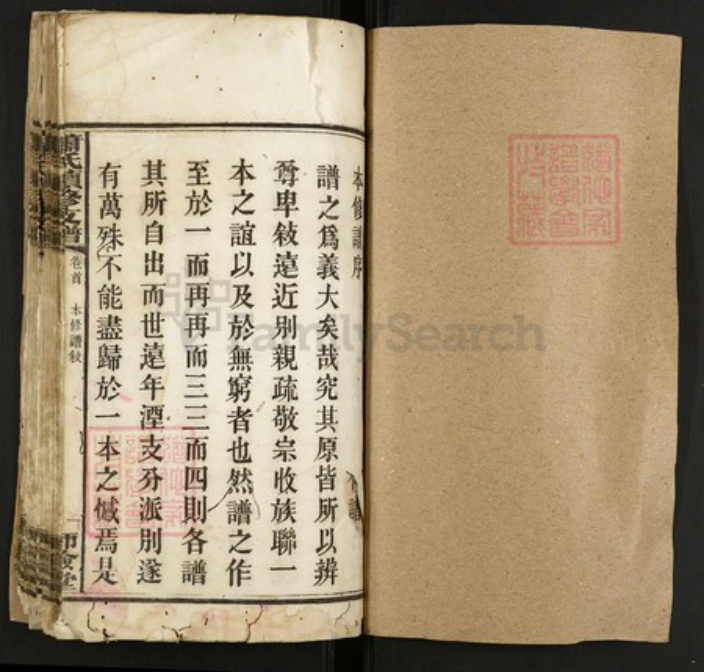 本修譜序
譜之爲義大矣哉究其原皆所以辨
尊卑敍遠近別親疏敬宗收族聯一
本之誼以及於無窮者也然譜之作
至於一而再再而三三而四則各譜
其所自出而世遠年湮支分派別遂
有萬殊不能盡歸於一本之憾焉是
蕭氏續修支譜
卷首 本修譜敍
師儉堂
FamilySearch